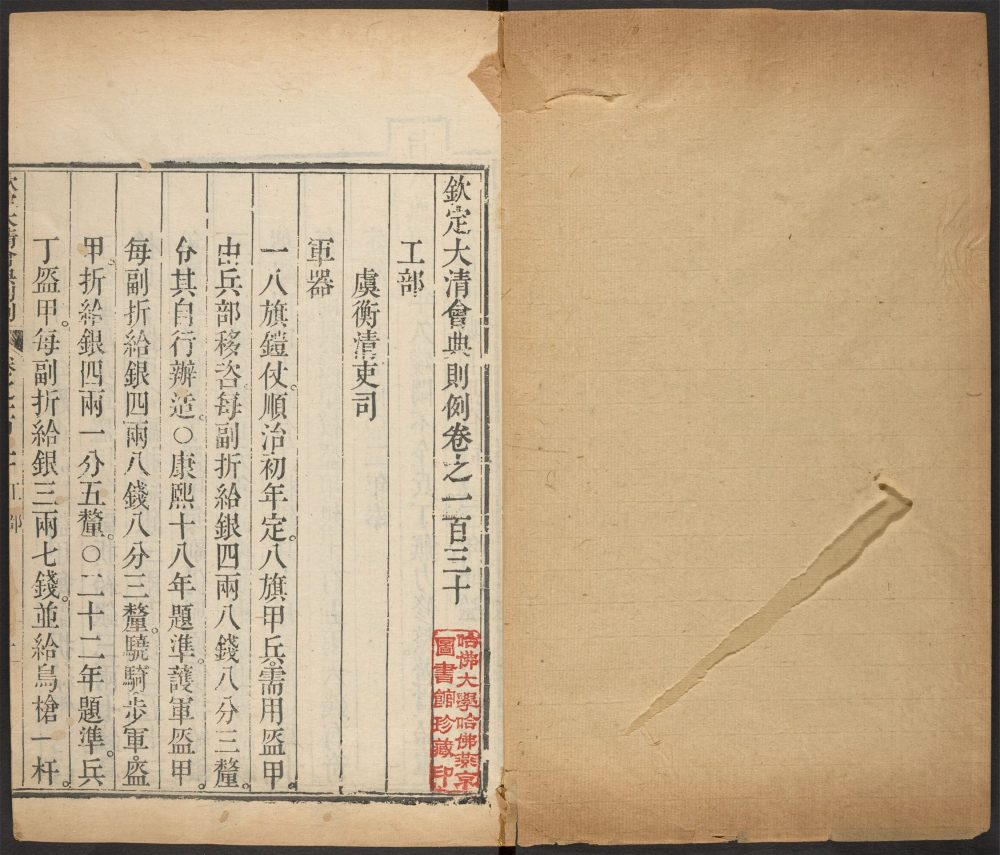 欽定大清會典則例卷之一百三十
哈佛大學哈佛燕京
圖書館珍藏印
工部
虞衡清吏司
軍器
一八旗鎧仗。順治初年定。八旗甲兵。需用盔甲。
由兵部移咨。每副折給銀四兩八錢八分三釐。
令其自行辦造。○康熙十八年題準。護軍盔甲
每副折給銀四兩八錢八分三釐。驍騎步軍。盔
甲。折給銀四兩一分五釐。○二十二年題準。兵
丁盔甲。每副折給銀三兩七錢。並給鳥槍一杆。